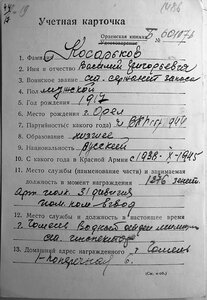 Учетная карточка
Орденская книжка Б 601873
Удостоверение
1. Фамилия Косарьков
2. Имя и отчество Василий Григорьевич
3. Воинское звание ст. сержант запаса
4. Пол мужской
5. Год рождения 1917
6. Место рождения г. Орел
7. Партийность(с какого года) ч ВКП(б) 1944
8. Образование низшее
9. Национальность русский
10. С какого года в Красной Армии с 1938-X-1945
11. Место службы (наименование части) и занимаемая
должность в момент награждения 1276 зенит.
арт. полк 31 дивизия
пом. ком. взвод
12. Место службы и должность в настоящее время
г. Гомель Водной
ст. инспектор
13. Домашний адрес награжденного г. Гомель
6.
(См. н об.)